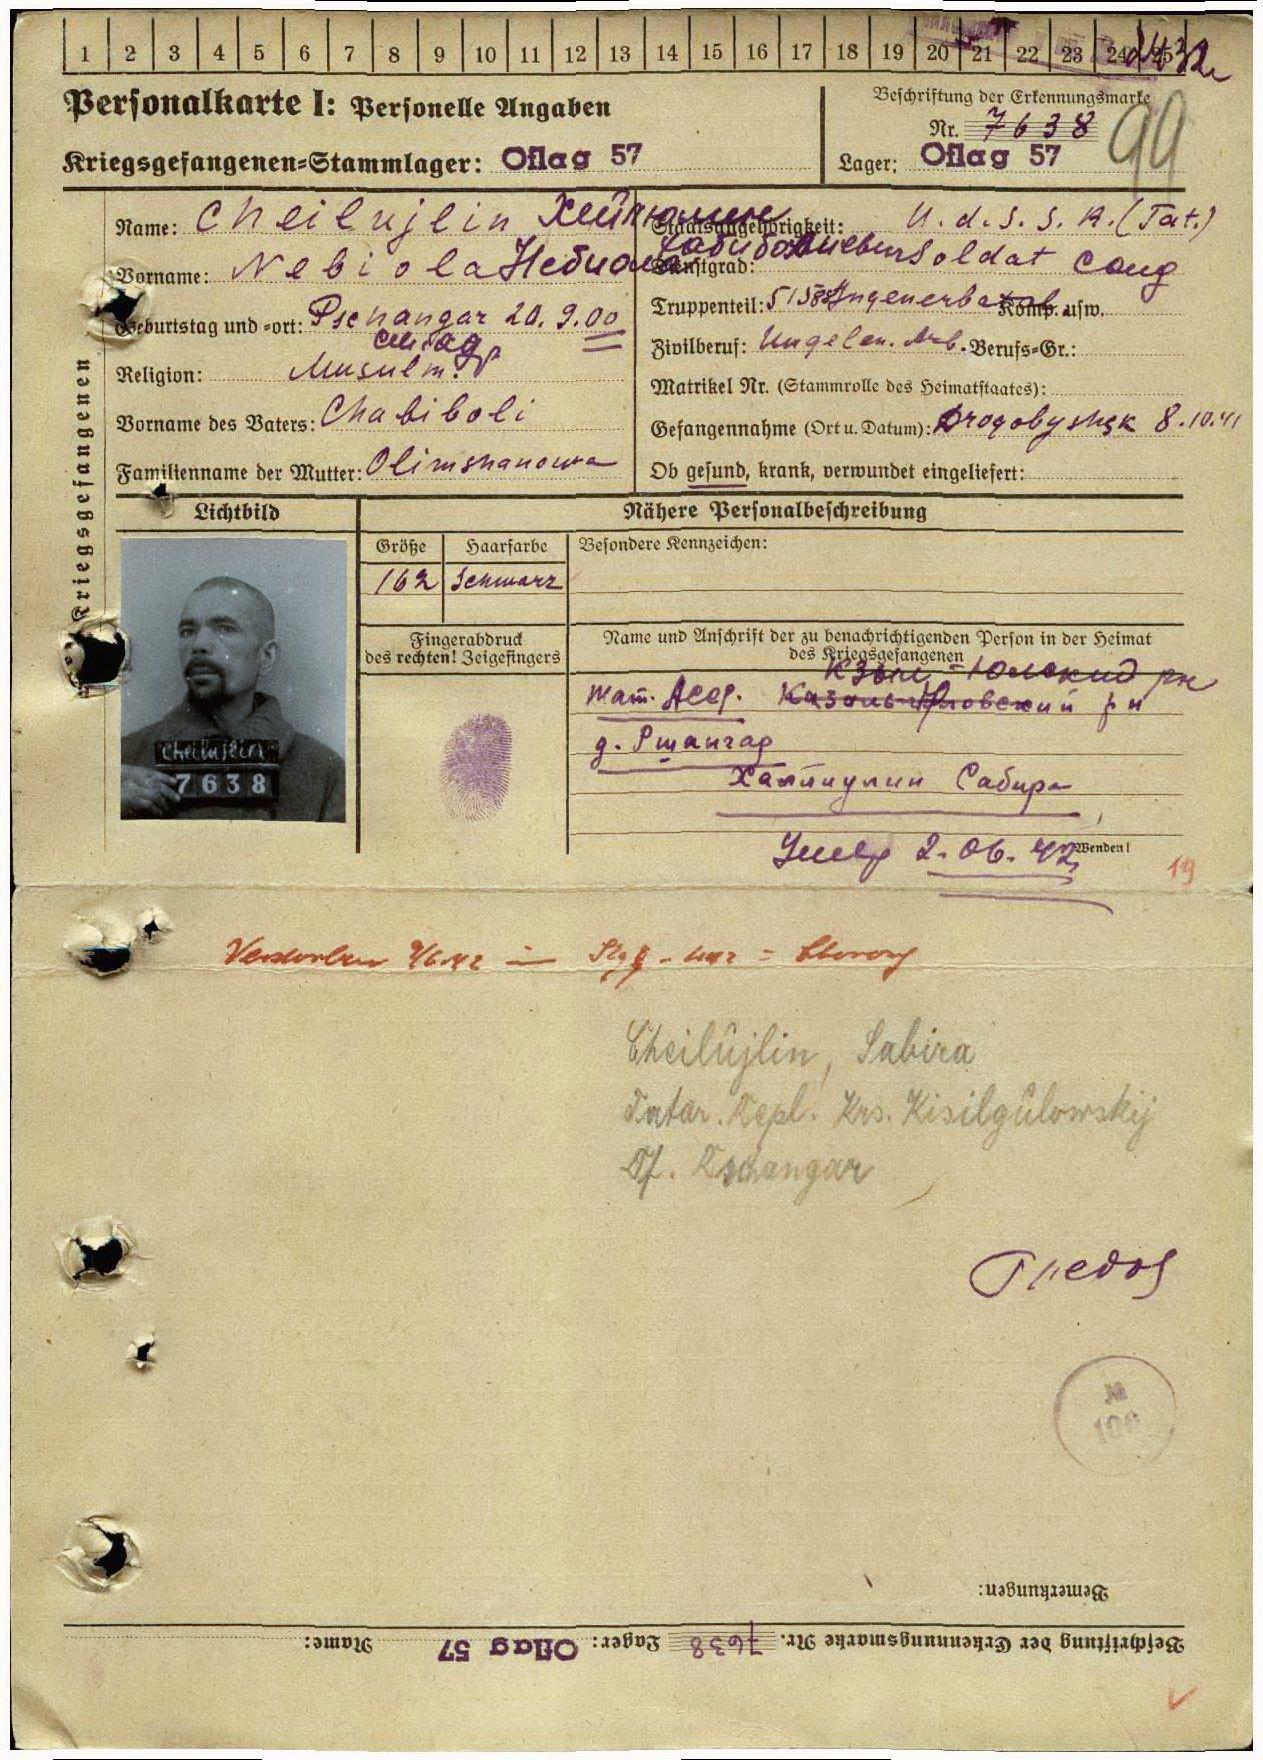 1 2 3 4 5 6 7 8 9 10 11 12 13 14 15 16 17 18 19 20 21 22 23 24 25
Personalkarte I: Personelle Angaben
Beschriftung der Erkennungsmarke
Nr. 7638
99
Kriegsgefangenen-Stammlager: Oflag 57
Lager: Oflag 57
Kriegsgefangenen
Name: Cheilujlin
Staatsangehörigkeit: U.d.S.S.R. (Tat.)
Vorname: Nebiola Небиола
Dienstgrad: Soldat солд
Geburtstag und -ort: Pschangar 20.9.00
Truppenteil: Komp. usw.
Religion: Musulm.
Zivilberuf: Ungelern. Arb. Berufs-Gr.:
Matrikel Nr. (Stammrolle des Heimatstaates):
Vorname des Vaters: Chabiboli
Gefangennahme (Ort u. Datum): Drogobyshsk 8.10.41
Familienname der Mutter: Olimshanowa
Ob gesund, krank, verwundet eingeliefert:
Lichtbild
Nähere Personalbeschreibung
Größe
Haarfarbe
Besondere Kennzeichen:
162
Schwarz
Fingerabdruck
des rechten! Zeigefingers
Name und Anschrift der zu benachrichtigenden Person in der Heimat
des Kriegsgefangenen
Тат. Асср.
д. Пшангар
Сабира
Cheilujlin
7638
Умер 2.06.42
Wenden!
19
Verstorben
Cheilûjlin, Sabira
Tatar. Repl. Krs. Kisilgûlowskij
Df. Pschangar
Bemerkungen:
Beschriftung der Erkennungsmarke Nr. 7638 Lager: Oflag 57 Name: